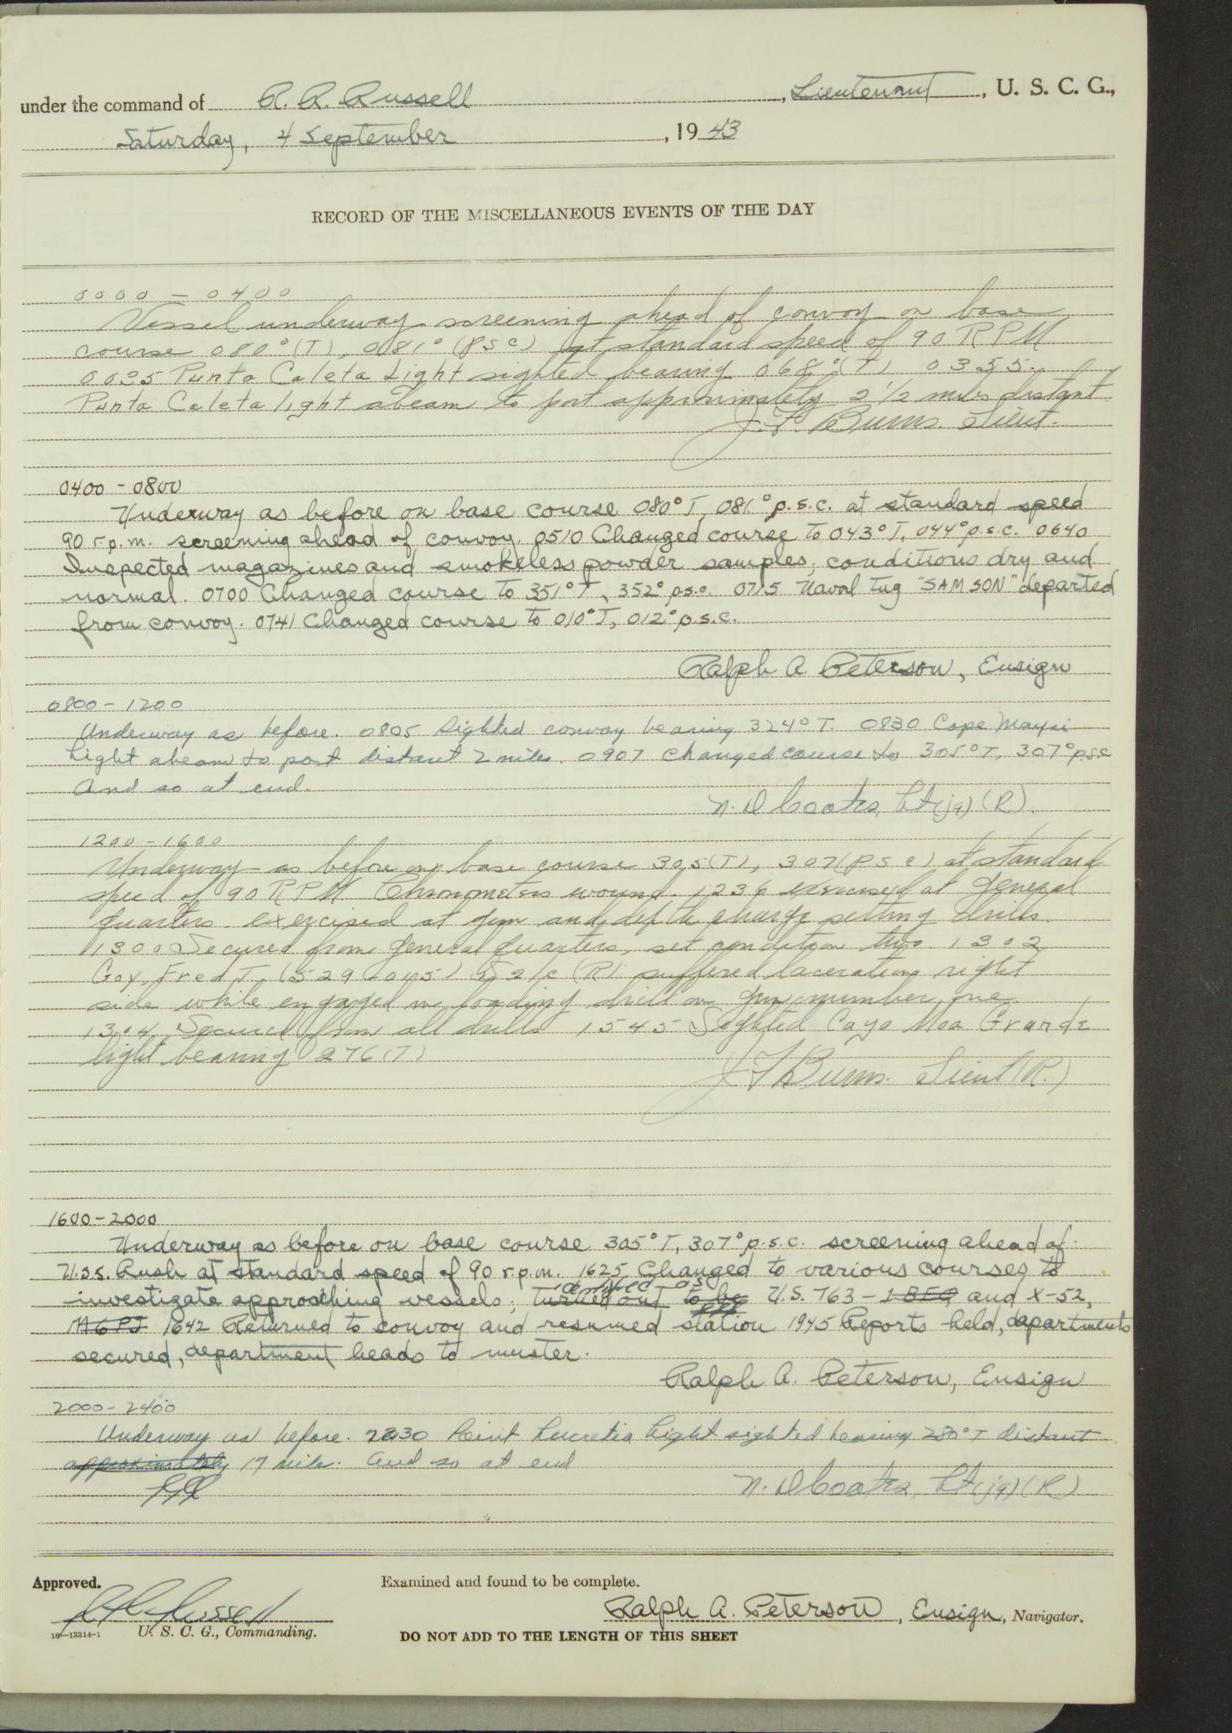 under the command of R. R. Russell, Lieutenant, U. S. C. G.,
Saturday, 4 September, 1943
RECORD OF THE MISCELLANEOUS EVENTS OF THE DAY
0000 - 0400
Vessel underway screening ahead of convoy on base
course 080°(T), 081° (psc) at standard speed of 90 RPM
0035 Punta Caleta Light sighted bearing 068°(T) 0355.
Punta Caleta light abeam to port approximately 2 1/2 miles distant.
J. F. Burns. Lieut.
0400 - 0800
Underway as before on base course 080°T, 081° p.s.c. at standard speed
90 r.p.m. screening ahead of convoy. 0510 Changed course to 043°T, 044° p.s.c. 0640
Inspected magazines and smokeless powder samples, conditions dry and
normal. 0700 Changed course to 351°T, 352° p.s.c. 0715 Naval tug "SAMSON" departed
from convoy. 0741 Changed course to 010°T, 012° p.s.c.
Ralph A. Peterson, Ensign
0800 - 1200
Underway as before. 0805 Sighted convoy bearing 324° T. 0830 Cape Maysi
Light abeam to port distant 2 miles. 0907 Changed course to 305°T, 307° psc
And so at end.
N. D Coates, Lt(jg) (R).
1200 - 1600
Underway as before on base course 305(T), 307(psc) at standard
speed of 90 RPM Chronometers wound. 1236 exercised at general
quarters exercised at gun and depth charge setting drills.
1300 Secured from general quarters, set condition two. 1302
Fred T. (529-045) S2/c (R) suffered laceration right
side while engaged in loading drill on gun number one
1304 Secured from all drills 1545 Sighted Cayo Moa Grande
light bearing 276(T)
J F Burns. Lieut (R.)
1600 - 2000
Underway as before on base course 305°T, 307° p.s.c. screening ahead of
U.S.S. Rush at standard speed of 90 r.p.m. 1625 Changed to various courses to
identified as
investigate approaching vessels; turned out to be U.S. 763 - and X-52,
1642 Returned to convoy and resumed station 1945 Reports held, departments
secured, department heads to muster.
Ralph A. Peterson, Ensign
2000 - 2400
Underway as before. 2230 Point Lucretia Light sighted bearing 280°T distant
approximately 17 miles. And so at end
N. D Coates, Lt(jg) (R)
Approved.
Examined and found to be complete.
R R Russell
Ralph A. Peterson, Ensign, Navigator.
16—13314-1 U. S. C. G., Commanding.
DO NOT ADD TO THE LENGTH OF THIS SHEET